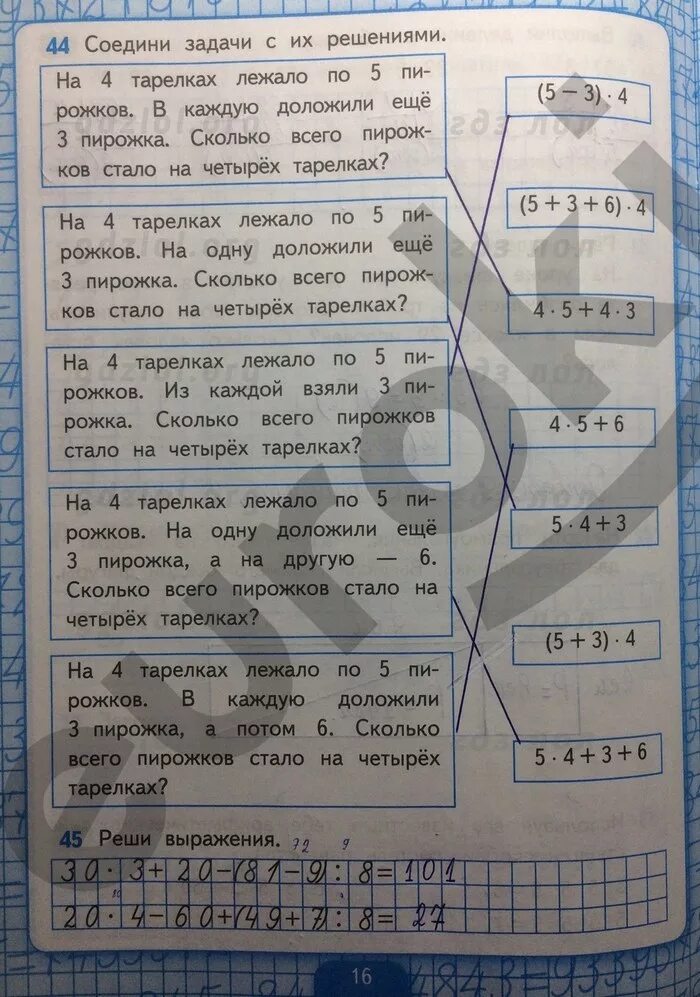 44 Соедини задачи с их решениями.
На 4 тарелках лежало по 5 пи-
рожков. В каждую доложили ещё
3 пирожка. Сколько всего пирож-
ков стало на четырёх тарелках?
(5 − 3) · 4
На 4 тарелках лежало по 5 пи-
рожков. На одну доложили ещё
3 пирожка. Сколько всего пирож-
ков стало на четырёх тарелках?
(5 + 3 + 6) · 4
4 · 5 + 4 · 3
На 4 тарелках лежало по 5 пи-
рожков. Из каждой взяли 3 пи-
рожка. Сколько всего пирожков
стало на четырёх тарелках?
4 · 5 + 6
На 4 тарелках лежало по 5 пи-
рожков. На одну доложили ещё
3 пирожка, а на другую — 6.
Сколько всего пирожков стало на
четырёх тарелках?
5 · 4 + 3
(5 + 3) · 4
На 4 тарелках лежало по 5 пи-
рожков. В каждую доложили
3 пирожка, а потом 6. Сколько
всего пирожков стало на четырёх
тарелках?
5 · 4 + 3 + 6
45 Реши выражения.
72 9
30 · 3 + 20 − (81 − 9) : 8 = 101
20 · 4 − 60 + (49 + 7) : 8 = 27
16
euroki